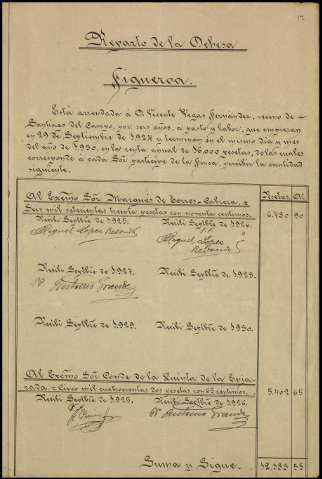 12
Reparto de la Dehesa
Figueroa.
Está arrendada á D. Vicente Vegas Fernandez, vecino de
Santiago del Campo, por seis años, a pasto y labor, que empiezan
en 29 de Septiembre de 1924 y terminan en el mismo dia y mes
del año de 1930, en la renta anual de 16.000 pesetas, de las cuales
corresponde á cada Sor. participe de la finca, percibir la cantidad
siguiente.
Pesetas Cts.
Al Excmo. Sor. Marques de Torres-Cabrera,
Seis mil setecientas treinta pesetas con noventa centimos. 6.730 90
Recibí Sepbre de 1925. Recibí Sepbre de 1926.
Miguel Lopez Miguel Lopez
Recibí Sepbre de 1927. Recibí Sepbre de 1928.
Recibí Sepbre de 1929. Recibí Sepbre de 1930.
Al Excmo. Sor. Conde de la Quinta de la Enja-
rada = Cinco mil cuatrocientas dos pesetas con 65 centimos. 5.402 65
Recibí Sepbre de 1925. Recibí Sepbre de 1926.
Suma y Sigue. 12.133 55